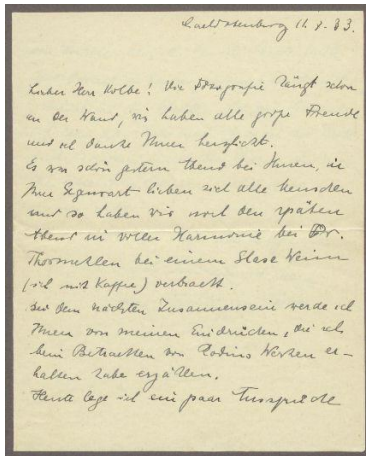 Charlottenburg 11. X. 33.
Lieber Herr Kolbe! Die Fotografie hängt schon
an der Wand, wir haben alle große Freude
und ich danke Ihnen herzlichst.
Es war schön gestern Abend bei Ihnen, in
Ihrer Gegenwart lieben sich alle Menschen
und so haben wir noch den späten
Abend in voller Harmonie bei Dr.
Thormaehlen bei einem Glase Wein
(ich mit Kaffee) verbracht.
Bei dem nächsten Zusammensein werde ich
Ihnen von meinen Eindrücken, die ich
beim Betrachten von Rodins Werken er-
halten habe erzählen.
Heute lege ich ein paar Aussprüche